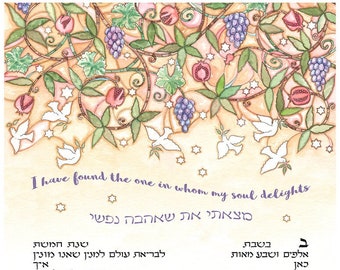 I have found the one in whom my soul delights
מצאתי את שאהבה נפשי
ב בשבת, שנת חמשת
אלפים ושבע מאות לבריאת עולם למנין שאנו מונין
כאן איך